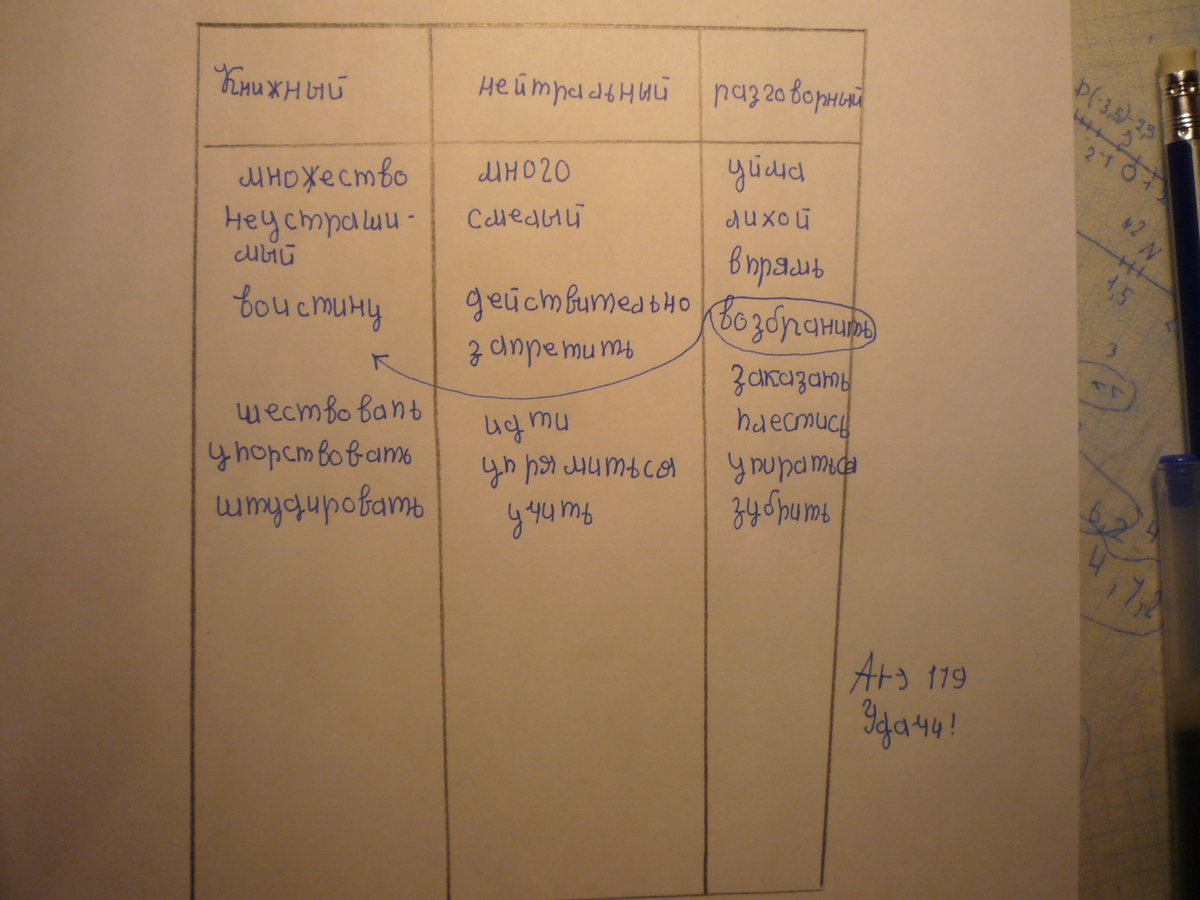 Книжный нейтральный разговорный
множество много уйма
неустраши-
мый
смелый лихой
впрямь
воистину действительно возбранить
запретить
заказать
шествовать идти плестись
упорствовать упрямиться упираться
штудировать учить зубрить
119
Удачи!
D(-3,5)
N
1,5
3
6,2 4
4